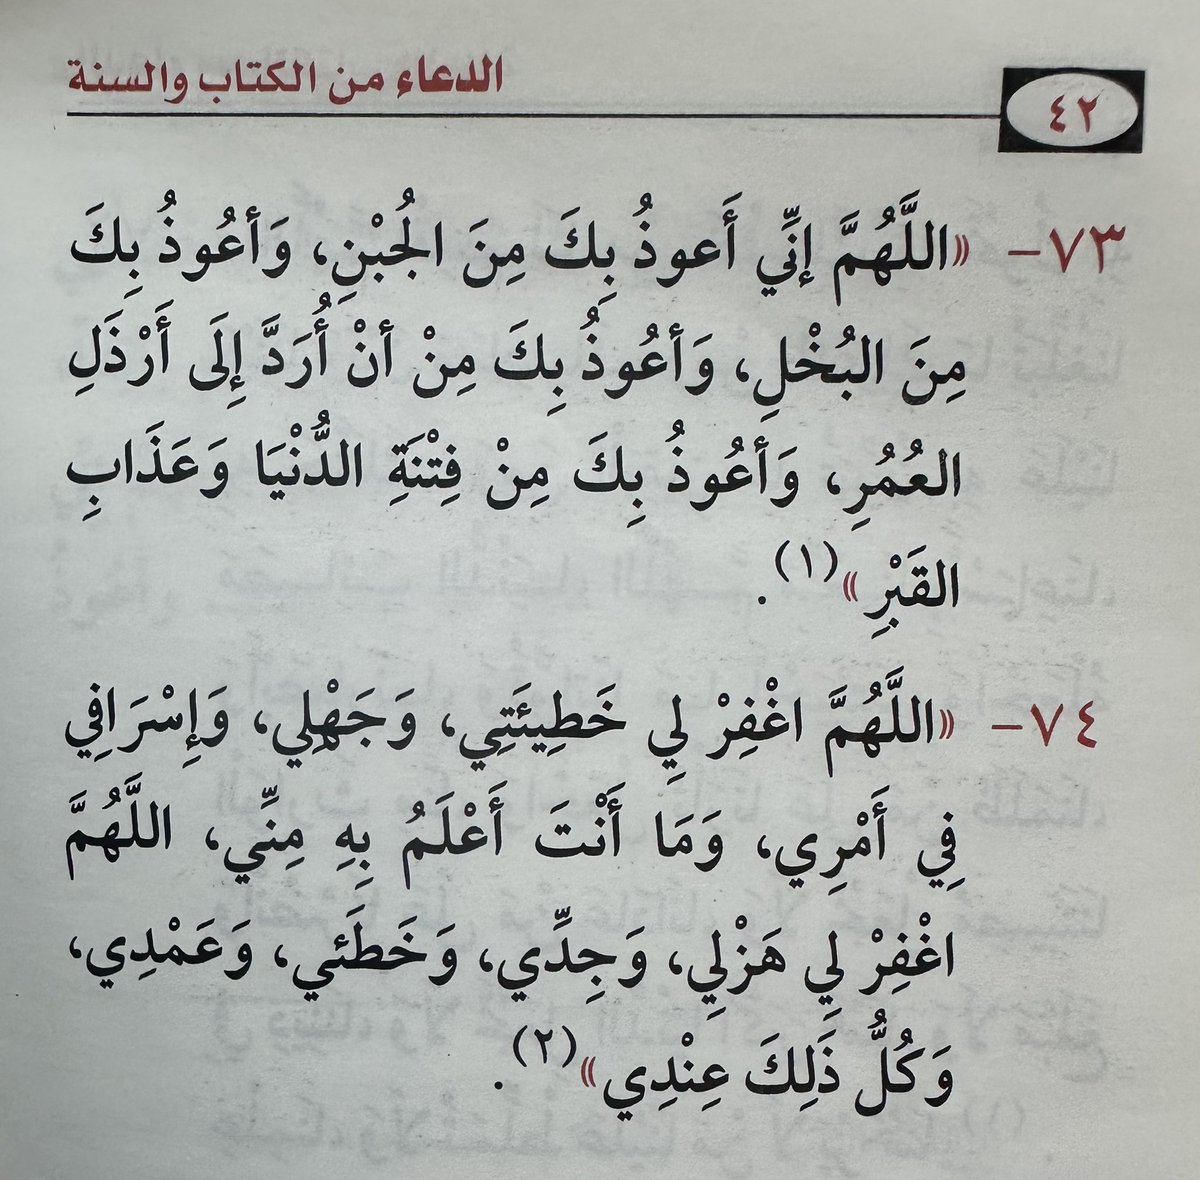 الدعاء من الكتاب والسنة
٤٢
٧٣- «اللَّهُمَّ إِنِّي أَعوذُ بِكَ مِنَ الْجُبْنِ، وَأَعُوذُ بِكَ
مِنَ البُخْلِ، وَأَعُوذُ بِكَ مِنْ أنْ أُرَدَّ إِلَى أَرْذَلِ
العُمُرِ، وَأَعُوذُ بِكَ مِنْ فِتْنَةِ الدُّنْيَا وَعَذَابِ
القَبْرِ»(١).
٧٤- «اللَّهُمَّ اغْفِرْ لِي خَطِيئَتِي، وَجَهْلِي، وَإِسْرَافِي
فِي أَمْرِي، وَمَا أَنْتَ أَعْلَمُ بِهِ مِنِّي، اللَّهُمَّ
اغْفِرْ لِي هَزْلِي، وَجِدِّي، وَخَطَئي، وَعَمْدِي،
وَكُلُّ ذَلِكَ عِنْدِي»(٢).